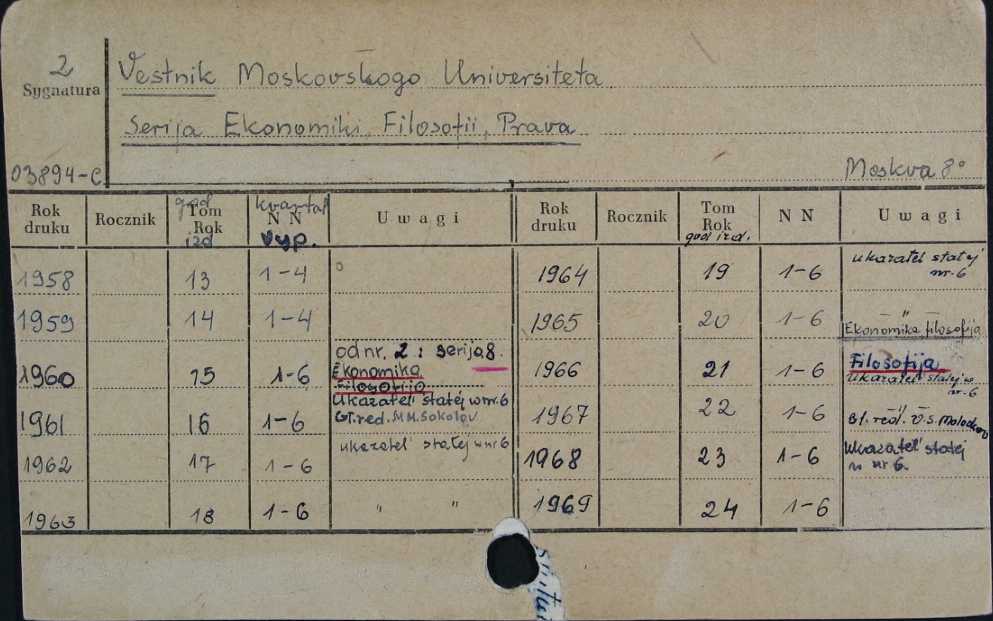 2
Sygnatura
03894-C
Vestnik Moskovskogo Universiteta
Serija Ekonomiki, Filosofii, Prava
Moskva 8°
Rok druku Rocznik god Tom Rok izd kvartal NN vyp. Uwagi Rok druku Rocznik Tom Rok god izd. NN Uwagi
1958 13 1-4 1964 19 1-6 ukazatel' statej nr. 6
1959 14 1-4 1965 20 1-6 " Ekonomika filosofija
1960 15 1-6 od nr. 2: serija 8. Ekonomika Filosofija 1966 21 1-6 Filosofija ukazatel' statej w nr. 6
1961 16 1-6 Ukazatel' statej w nr 6 Gł. red. M.M. Sokolov 1967 22 1-6 Gł. red. V.S.
1962 17 1-6 ukazatel' statej w nr 6 1968 23 1-6 Ukazatel' statej w nr 6.
1963 18 1-6 " " 1969 24 1-6